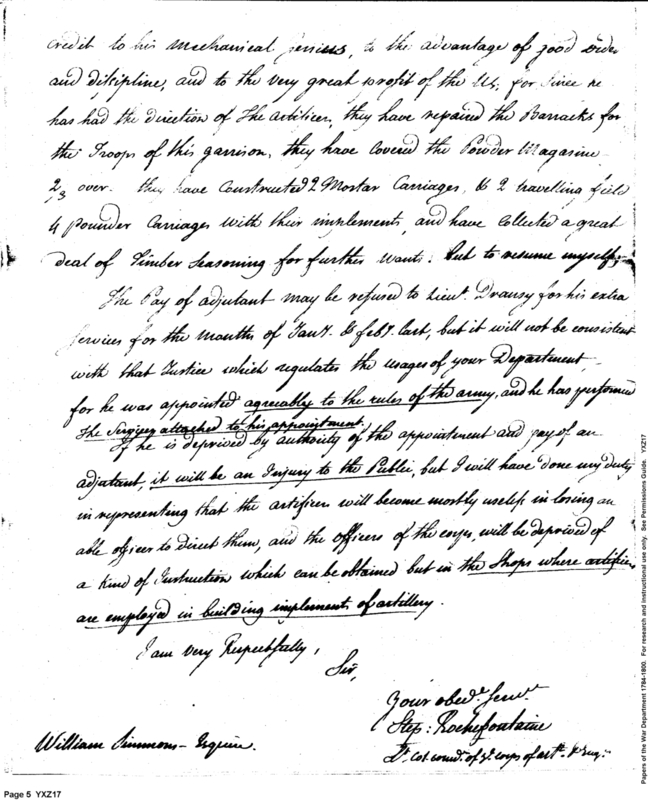 credit to his mechanical Genius, to the advantage of good order
and discipline, and to the very great profit of the US, for since he
has had the direction of The artificers, they have repaired the Barracks for
the Troops of this garrison, they have Covered the Powder Magasine
2/3 over. they have Constructed 2 Mortar Carriages, & 2 travelling field
4 pounder Carriages with their implements, and have Collected a great
deal of Timber Seasoning for further wants: but to resume myself;
The Pay of adjutant may be refused to Lieut. Dransy for his extra
Services for the months of Jany. & feby. last, but it will not be consistent
with that Justice which regulates the usages of your Department,
for he was appointed agreeably to the rules of the army, and he has performed
The Services attached to his appointment.
If he is deprived by authority of the appointment and pay of an
adjutant, it will be an Injury to the Public, but I will have done my duty
in representing that the artificers will become mostly useless in losing an
able officer to direct them, and the officers of the corps, will be deprived of
a kind of Instruction which can be obtained but in the Shops where artificers
are employed in building implements of artillery.
I am very Respectfully,
Sir,
Your obedt. Servt.
Step: Rochefontaine
Lt. Col. comdt. of 1st. corps of artts. & Engs.
William Simmons Esquire.
Page 5 YXZ17
Papers of the War Department 1784-1800. For research and instructional use only. See Permissions Guide. YXZ17